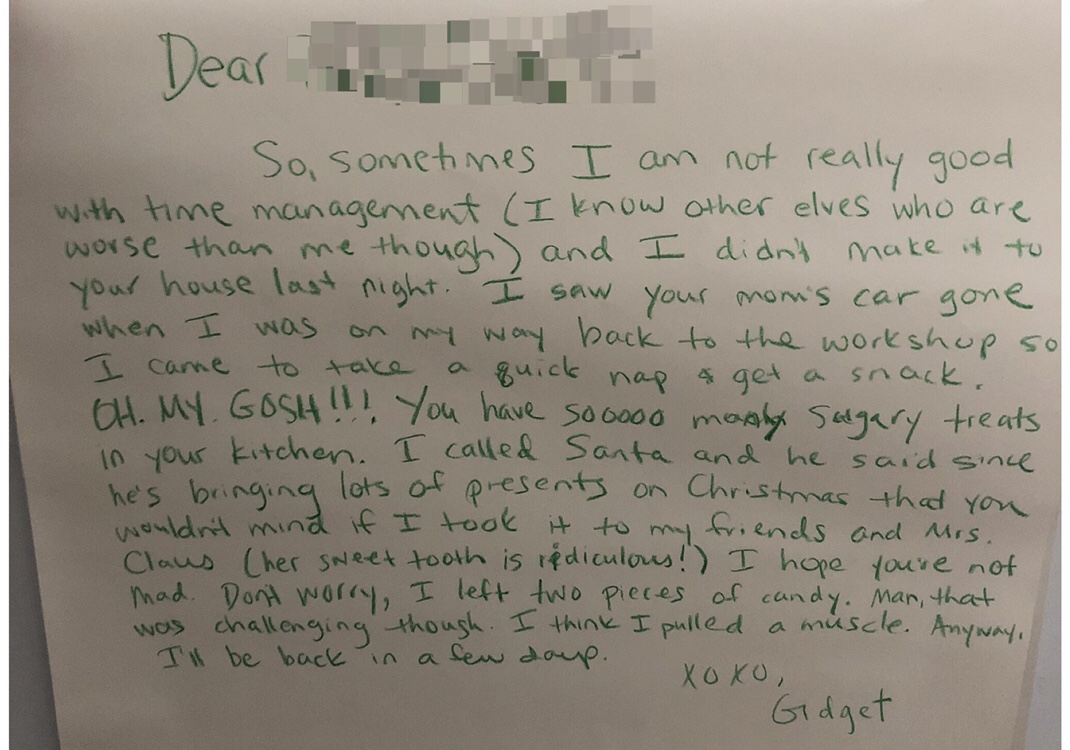 Dear
So, sometimes I am not really good
with time management (I know other elves who are
worse than me though) and I didn't make it to
your house last night. I saw your mom's car gone
when I was on my way back to the workshop so
I came to take a quick nap & get a snack.
OH. MY. GOSH!!! You have sooooo many sugary treats
in your kitchen. I called Santa and he said since
he's bringing lots of presents on Christmas that you
wouldn't mind if I took it to my friends and Mrs.
Claus (her sweet tooth is ridiculous!) I hope you're not
mad. Don't worry, I left two pieces of candy. Man, that
was challenging though. I think I pulled a muscle. Anyway,
I'll be back in a few days.
XOXO,
Gidget